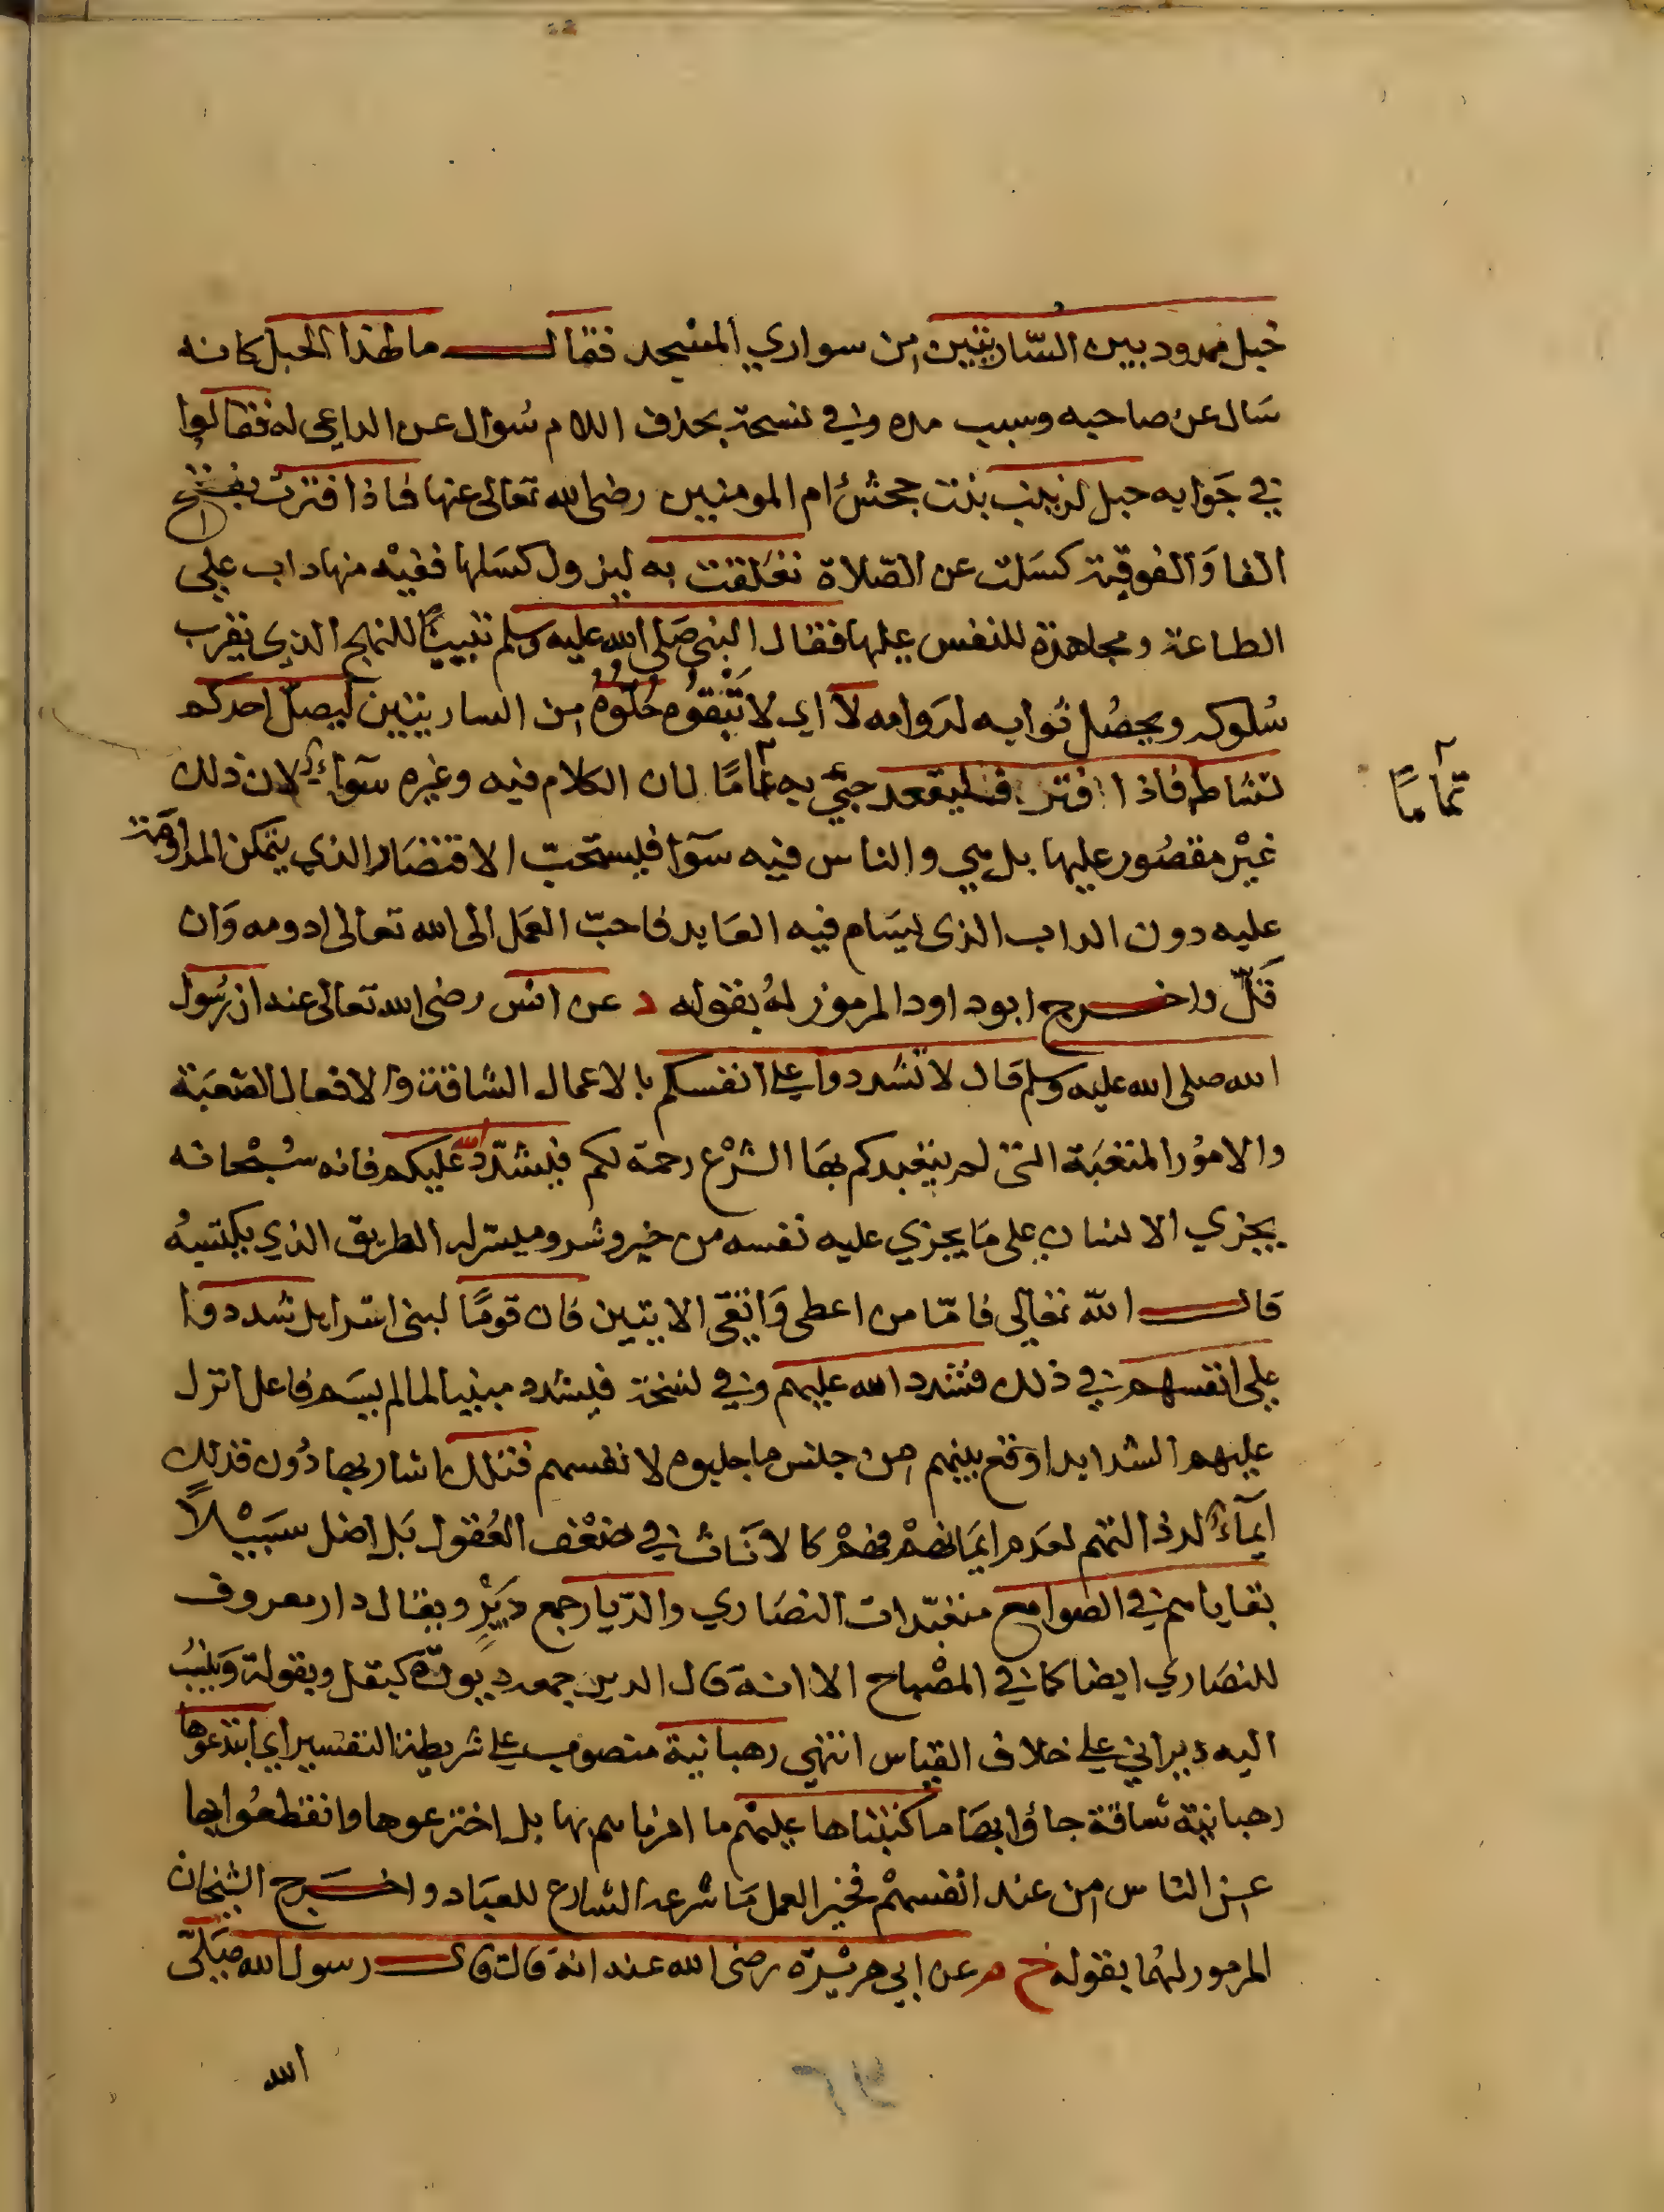 حبل ممدود بين السّاريتين من سواري المسجد فقال ما لهذا الحبل كانه
سال عن صاحبه وسبب مده وفي نسخة بحذف اللام سُوال عن الداعي له فقالوا
في جَوابه حبل لزينب بنت جحش ام المومنين رضي الله تعالى عنها فاذا افترت بفتح
الفا وَالفوقية كسَلت عن الصّلاة تعَلقت به ليزول كسَلها ففيْه منها داب على
الطاعة ومجاهدة للنفس عليها فقال النبي صَلى الله عليه وسلم تبيينًا للنهج الذي يقرب
سُلوكه ويحصُل ثوابه لدَوامه لا اي لا تُبْقوُه حُلوُّهُ من الساريتين ليصلّ احدكم
نشاطه فاذا افتر فليقعد جئ به عَامًا لان الكلام فيه وغيره سَوآءٌ لان ذلك
تمامًا
غيْر مقصُور عليها بل هي والناس فيه سَوآ فيستحبّ الاقتصَار الذي يتمكن المداوَمة
عليه دون الداب الذي يَسَام فيه العَابد فاحبّ العَمل الى الله تعالى ادومه وَان
قَلّ واخرج ابو داود المرموز لهُ بقوله د عن انس رضي الله تعالى عنه ان رسُول
الله صلى الله عليه وسلم قال لا تشددوا على انفسكم بالاعمال الشاقة والافعال الصّعبَة
والاموُر المتعَبة التي لم يتعبدكم بهَا الشرْع رحمة لكم فيشدّد الله عليكم فانه سُبْحانه
يجزي الانسان على مَا يجزي عليه نفسه من خير وشر وميسّر له الطريق الذي يكتسبهُ
قال الله تعَالى فامّا من اعطى وَاتقى الايتين فان قومًا لبني اسرايل شددوا
على انفسهم في ذلك فشدد الله عليهم وفي نسخة فيشدد مبنيا لما لم يسَم فاعل انزل
عليهم الشدايد اوقع بينهم من جنس ما جلبوه لانفسهم فتلك اشار بهَا دُون فذلك
ايمآءً لرذالتهم لعَدم ايمَانهمْ فهمْ كالاناث في ضعْف العُقول بَل اضل سَبيْلاً
بقاياهم في الصوامع متعَبّدات النصَاري والدّيار جمع دَيْرٍ ويقال دار معروف
للنصَاري ايضا كما في المصْباح الا انه قال الدير جمعه ديورَة كبقل وبقولة وَينسَبُ
اليه ديراني على خلاف القياس انتهى رهبانية منصوب على شريطة التفسير اي ابتدعوها
رهبانية شاقة جاؤا بهَا ما كتبناها عليهْم ما امرناهم بها بل اخترعوها وانقطعُوا بها
عن الناس من عند انفسهمْ فخير العمل مَا شرعه الشارع للعبَاد واخرج الشيخان
المرموز لهُما بقوله خ م عن ابي هريْرَة رضي الله عنه انهُ قالت قال رسول الله صَلى
الله